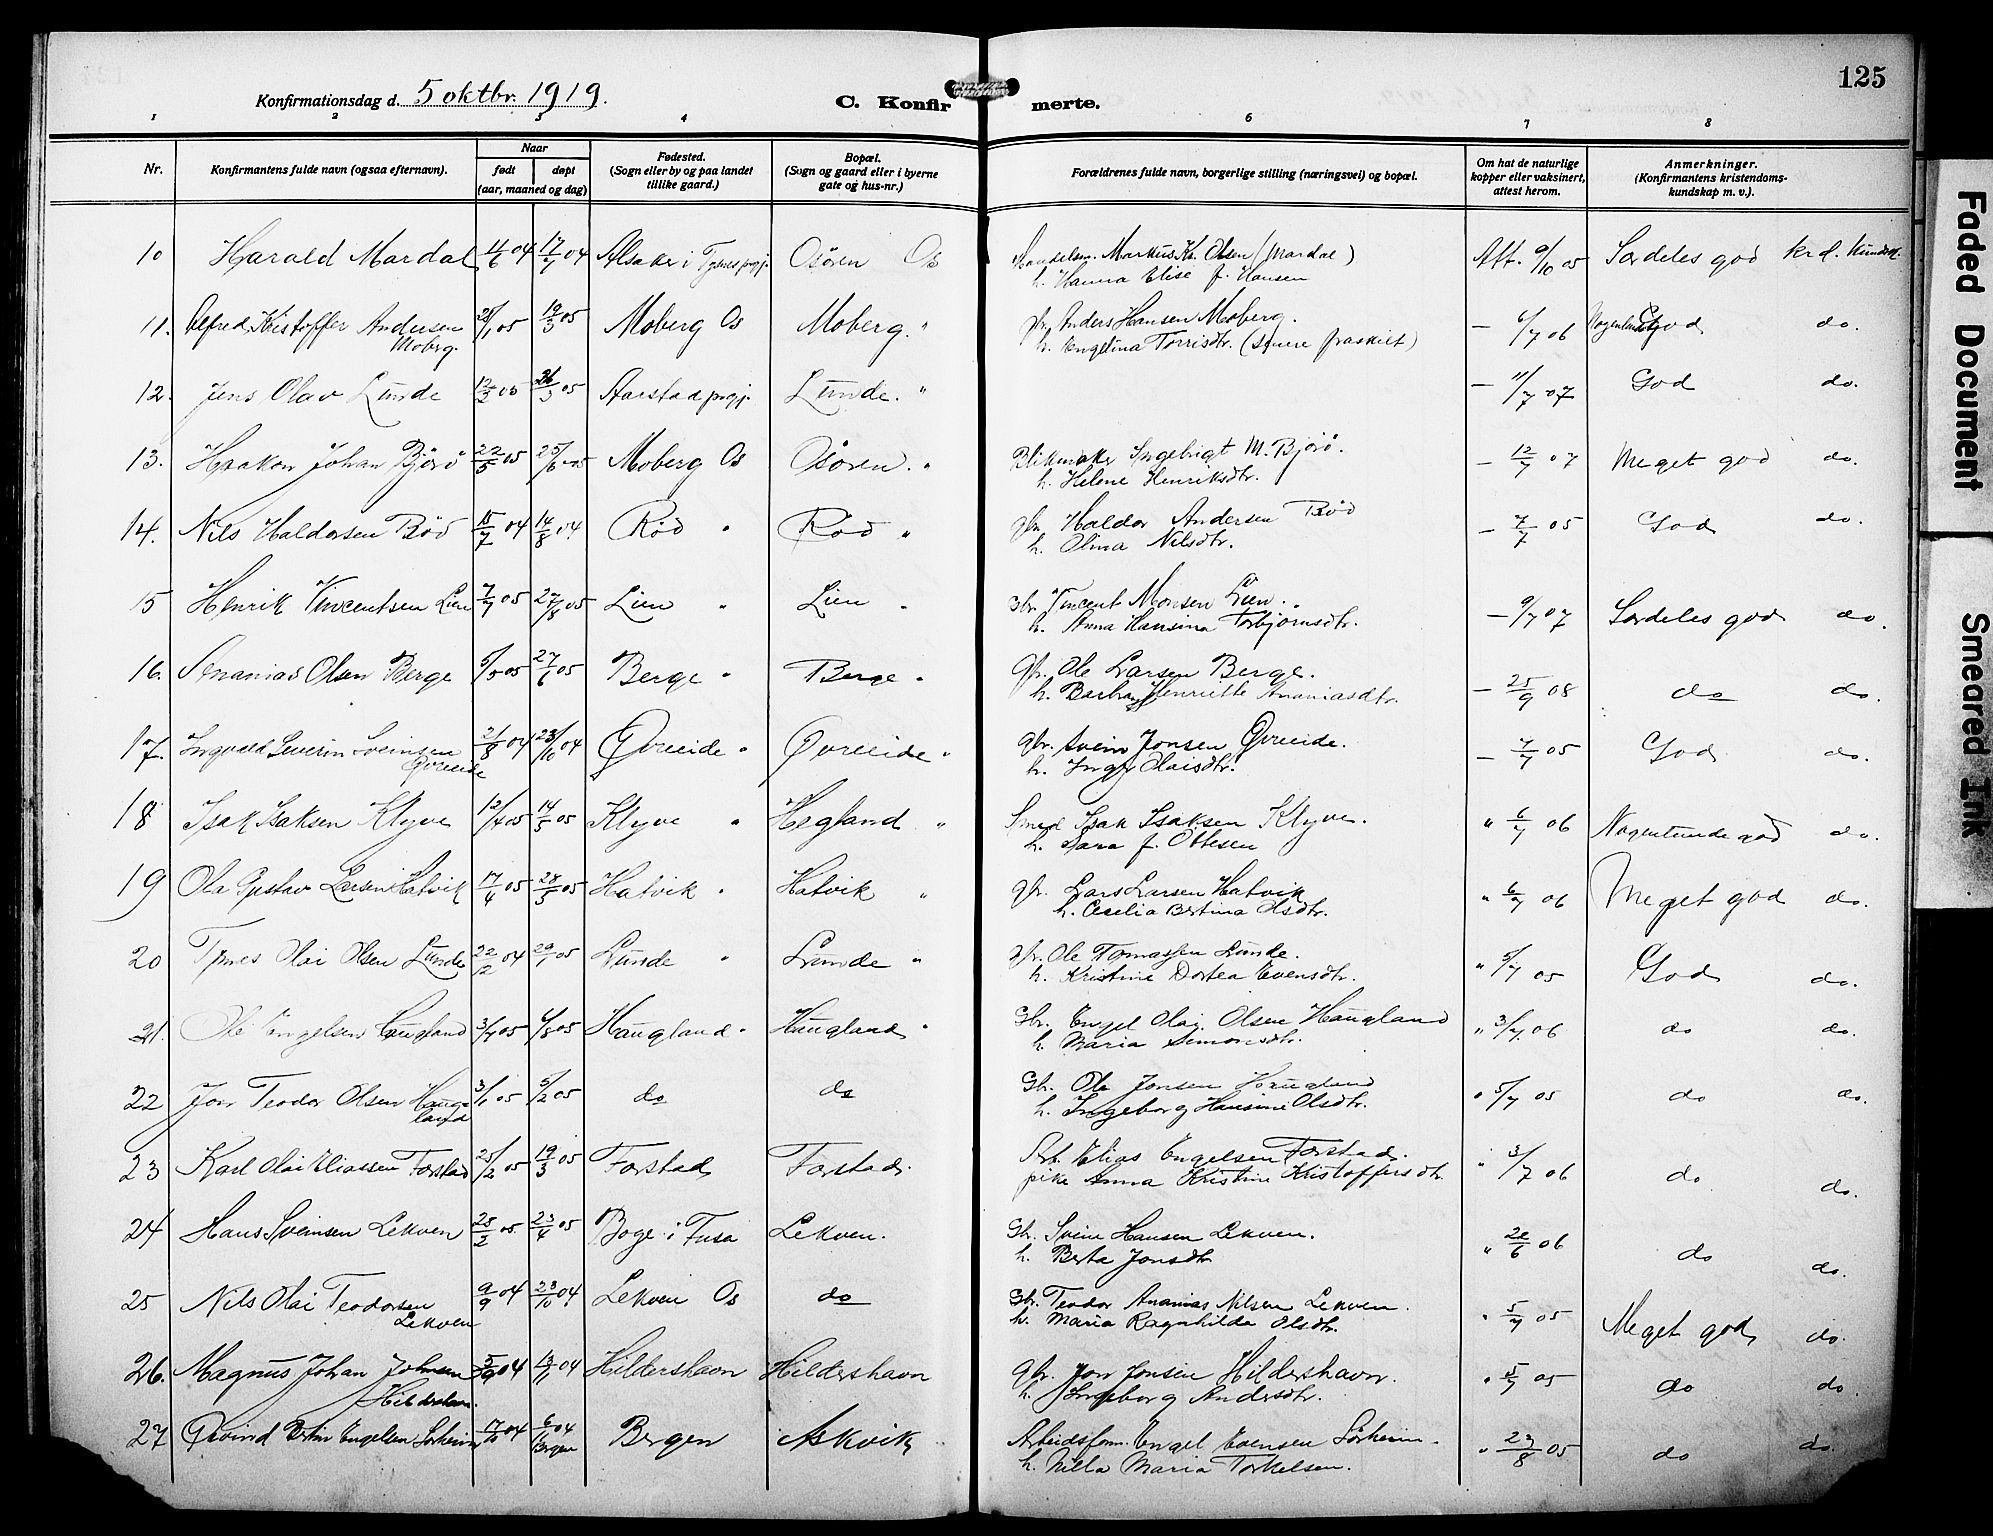 125
Konfirmationsdag d. 5 oktbr. 1919.
C. Konfirmerte.
1 2 3 4 6 7 8
Nr. Konfirmantens fulde navn (ogsaa efternavn). Naar født døpt (aar, maaned og dag) Fødested. (Sogn eller by og paa landet tillike gaard.) Bopæl. (Sogn og gaard eller i byerne gate og hus-nr.) Forældrenes fulde navn, borgerlige stilling (næringsvei) og bopæl. Om hat de naturlige kopper eller vaksinert, attest herom. Anmerkninger. (Konfirmantens kristendoms-kundskap m. v.).
10 Harald Mardal 04 17/7 04 Alsaker i Tysnes Osøren Os Markus Kr. Olsen (Mardal) Att. 9/10 05 Særdeles god krd. kundsk.
h. Hanna Elise f. Hansen
11. Alfred Kristoffer Andersen 05 19/3 05 Moberg Os Moberg. " gbr. Anders Hansen Moberg. — 6/7 06 Nogenlunde god do.
Moberg. h. Engelina Torrisdtr. (senere fraskilt)
12. Jens Olav Lunde 12/3 05 26/3 05 Aarstad prgj. Lunde. " — 11/7 07 God do.
13. Haakon Johan Bjørø 22/5 05 25/6 05 Moberg Os Osøren. " Blikmaker Ingebrigt M. Bjørø. — 12/7 07 Meget god do.
h. Helene Henriksdtr.
14. Nils Haldorsen Rød 15/7 04 14/8 04 Rød " Rød " gbr. Haldor Andersen Rød — 7/7 05 God do.
h. Olina Nilsdtr.
15 Henrik Vincentsen Lien 7/7 05 27/8 05 Lien " Lien " Gbr. Vincent Monsen Lien. — 9/7 07 Særdeles god do.
h. Anna Hansina Torbjørnsdtr.
16. Ananias Olsen Berge 5/5 05 27/6 05 Berge " Berge " gbr. Ole Larsen Berge. — 25/9 08 do do.
h. Barbra Henriette Ananiasdtr.
17. Ingvald Severin Sveinsen 21/8 04 23/10 04 Øvreeide " Øvreeide " gbr. Svein Jonsen Øvreeide. — 7/7 05 God do.
Øvreeide h. Inger Olaisdtr.
18 Isak Isaksen Klyve 12/4 05 14/5 05 Klyve " Hegland " Smed Isak Isaksen Klyve. " 6/7 06 Nogenlunde god do.
h. Sara f. Ottesen
19 Ola Gustav Larsen Hatvik 17/4 05 28/5 05 Hatvik " Hatvik " gbr. Lars Larsen Hatvik " 6/7 06 Meget god do.
h. Cecelia Bertina Olsdtr.
20 Olai Olsen Lunde 22/12 04 29/1 05 Lunde " Lunde " gbr. Ole Tomassen Lunde. " 5/7 05 God do.
h. Kristine Dortea Evensdtr.
21. Ole Engelsen Haugland 3/7 05 6/8 05 Haugland " Haugland " Gbr. Engel Olai Olsen Haugland " 3/7 06 do do.
h. Maria Simonsdtr.
22 Jon Teodor Olsen Haug- 3/1 05 5/2 05 do do Gbr. Ole Jonsen Haugland " 5/7 05 do do.
land h. Ingeborg Hansine Olsdtr.
23 Karl Olai Eliassen Forstad 25/2 05 19/3 05 Forstad Forstad. Arb. Elias Engelsen Forstad. " 3/7 06 do do.
pike Anna Kristine Kristoffersdtr.
24 Hans Sveinsen Lekven 25/2 05 23/4 05 Boge i Fusa Lekven. Gbr. Svein Hansen Lekven. " 06 do do.
h. Berta Jonsdtr
25 Nils Olai Teodorsen 9/9 04 23/10 04 Lekven Os do Gbr. Teodor Ananias Nilsen Lekven. " 5/7 05 Meget god do.
Lekven h. Maria Ragnhilda Olsdtr.
26. Magnus Johan Johnsen 5/9 04 04 Hildershavn Hildershavn gbr. Jon Jonsen Hildershavn. " 5/7 05 do do.
h. Ingeborg Andersdtr.
27 Øivind Bertin Engelsen Sørheim 17/10 04 6/11 04 Bergen Askvik Arbeidsform. Engel Evensen Sørheim. " 23/8 05 do do.
Bergen h. Nilla Maria Torkelsen.
Faded Document
Smeared Ink